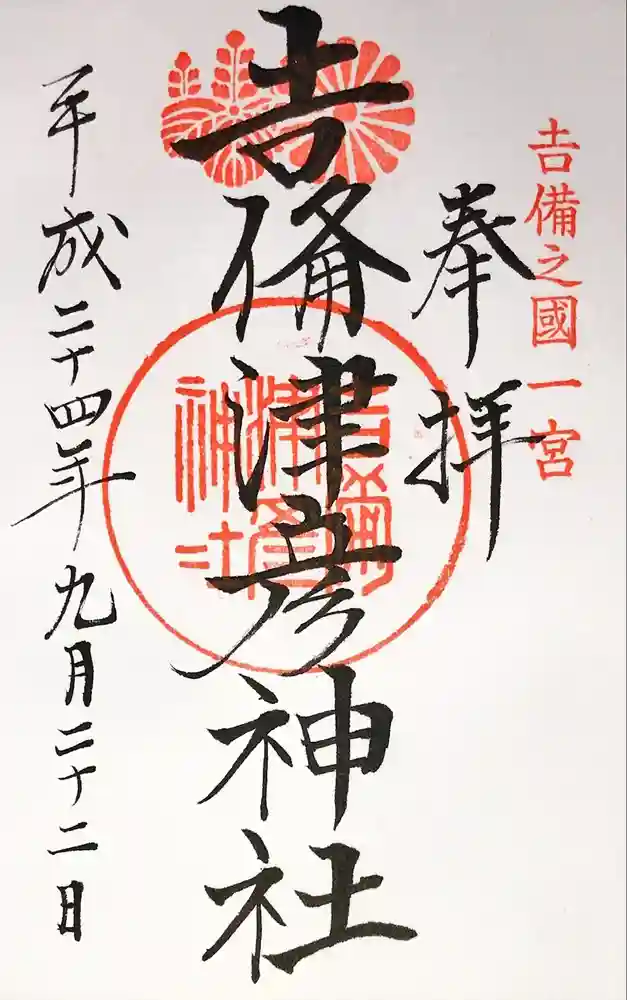 𠮷備之國一宮
奉拝
𠮷備津彦神社
平成二十四年九月二十二日
吉備
津彦
神社